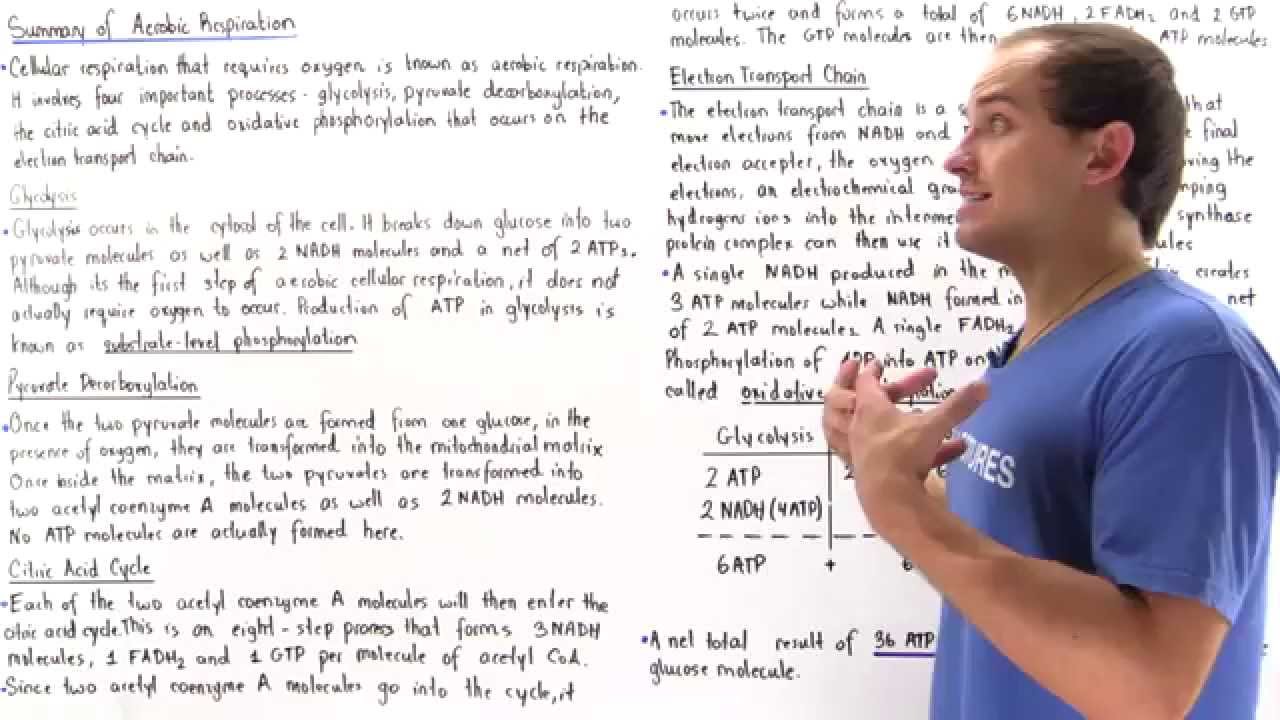 Summary of Aerobic Respiration
• Cellular respiration that requires oxygen is known as aerobic respiration.
It involves four important processes - glycolysis, pyruvate decarboxylation,
the citric acid cycle and oxidative phosphorylation that occurs on the
electron transport chain.
Glycolysis
• Glycolysis occurs in the cytosol of the cell. It breaks down glucose into two
pyruvate molecules as well as 2 NADH molecules and a net of 2 ATPs.
Although its the first step of aerobic cellular respiration, it does not
actually require oxygen to occur. Production of ATP in glycolysis is
known as substrate-level phosphorylation
Pyruvate Decarboxylation
• Once the two pyruvate molecules are formed from one glucose, in the
presence of oxygen, they are transformed into the mitochondrial matrix
Once inside the matrix, the two pyruvates are transformed into
two acetyl coenzyme A molecules as well as 2 NADH molecules.
No ATP molecules are actually formed here.
Citric Acid Cycle
• Each of the two acetyl coenzyme A molecules will then enter the
citric acid cycle. This is an eight-step process that forms 3 NADH
molecules, 1 FADH₂ and 1 GTP per molecule of acetyl CoA.
• Since two acetyl coenzyme A molecules go into the cycle, it
occurs twice and forms a total of 6 NADH, 2 FADH₂ and 2 GTP
molecules. The GTP molecules are then ATP molecules
Electron Transport Chain
• The electron transport chain is a that
move electrons from NADH and final
electron accepter, the oxygen the
electrons, an electrochemical
hydrogens ions into the synthase
protein complex can then use it
• A single NADH produced in the creates
3 ATP molecules while NADH formed in net
of 2 ATP molecules. A single FADH₂
Phosphorylation of ADP into ATP on
called oxidative
Glycolysis
2 ATP
2 NADH (4ATP)
6 ATP + 6
• A net total result of 36 ATP
glucose molecule.